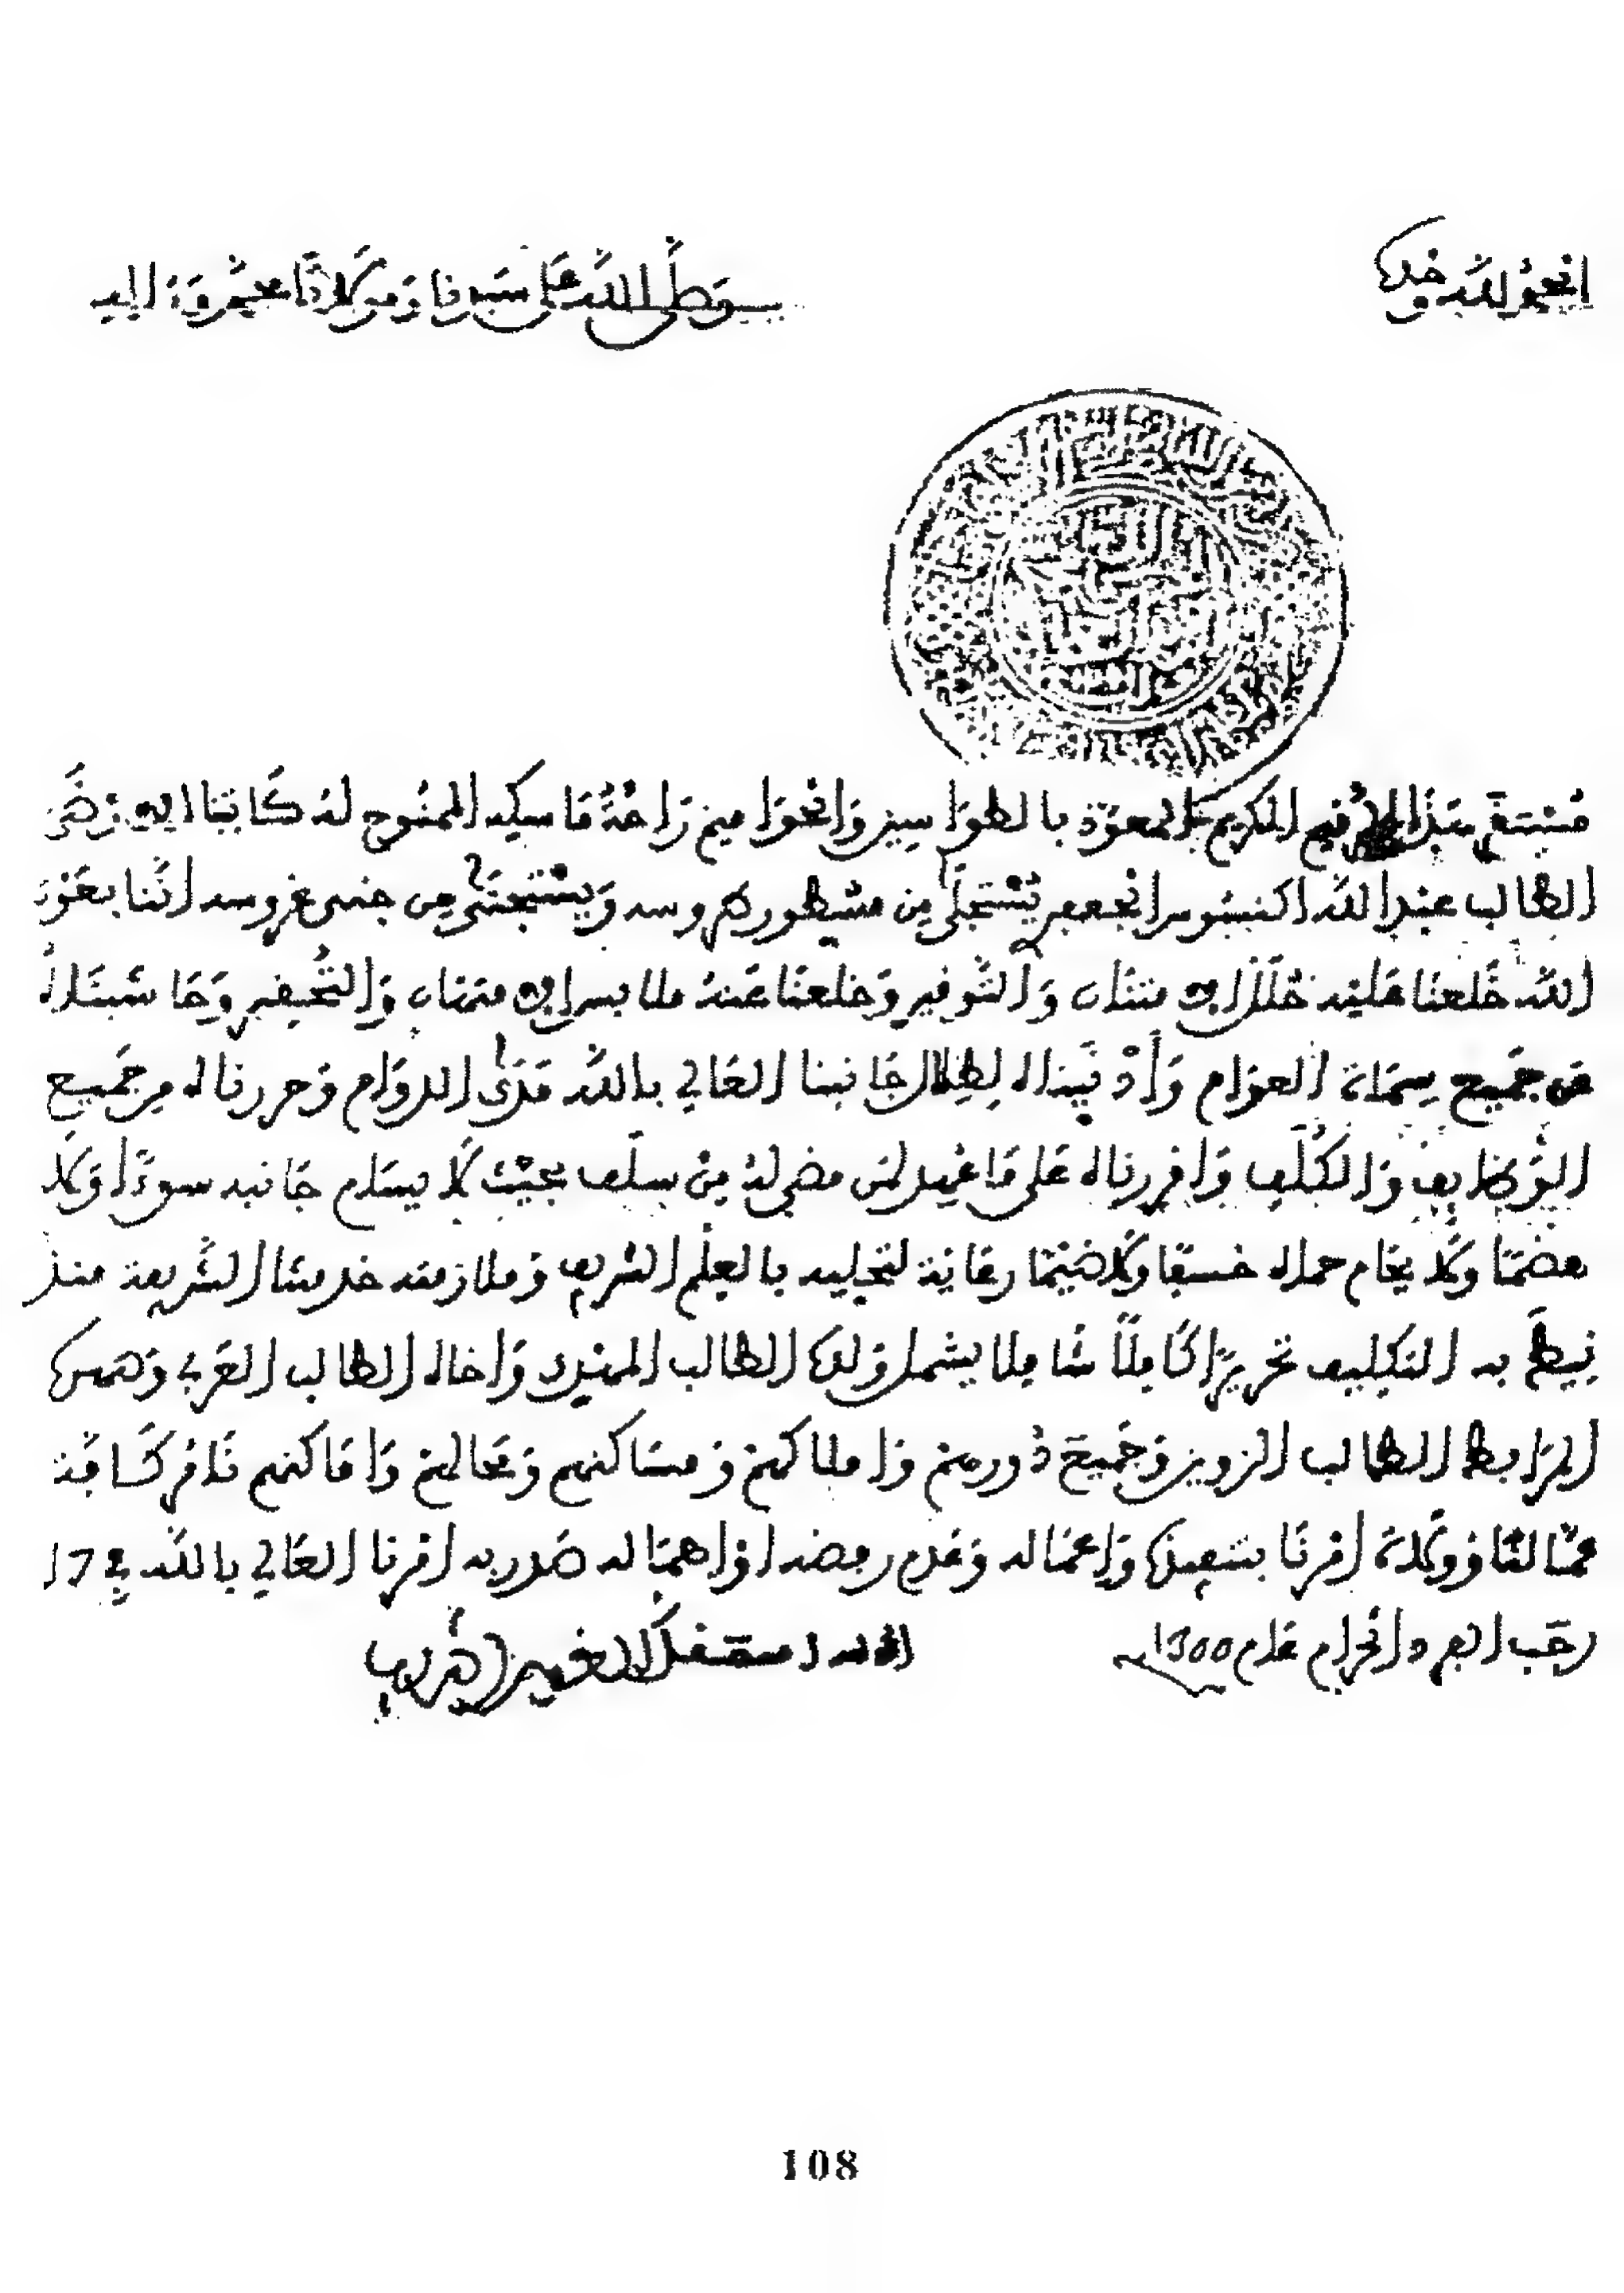 الحمد لله وحده
وصلى الله على سيدنا ومولانا محمد وءاله
هذا الكريم المعوذ بالطواسين والحواميم راحة ماسكه الممنوح له كاتبنا الارضى
الطالب عبد الله اكنسوس الجعفر يستجلى من مسطوره وسه ويستجنى من جنى غروسه اننا بعون
الله خلعنا عليه حلل الامتنان والتوفير وخلعنا عنه ملابس الامتهان والتحقير وحاشيناه
من جميع سمات العوام وأوينه لظلال جانبنا العالي بالله مدى الدوام وحررناه من جميع
الوظايف والكلف واقررناه على ما عهد لمن مضى له من سلف بحيث لا يسام جانبه سوءا ولا
هضما ولا يحام حماه خسفا ولا ضيما رعاية لتحليه بالعلم الشريف وملازمته خدمتنا الشريفة منذ
نيط به التكليف تحريرا كاملا شاملا يشمل ولده الطالب المهدي واخاه الطالب العربي وصهره
المرابط الطالب الزوين وجميع دورهم واملاكهم ومساكنهم ومحالهم واماكنهم نامر كافة
عمالنا وولاة امرنا بتنفيذه وإعماله وعدم رفضه او اهماله صدر به امرنا العالي بالله في 17
رجب الفرد الحرام عام 1300
108